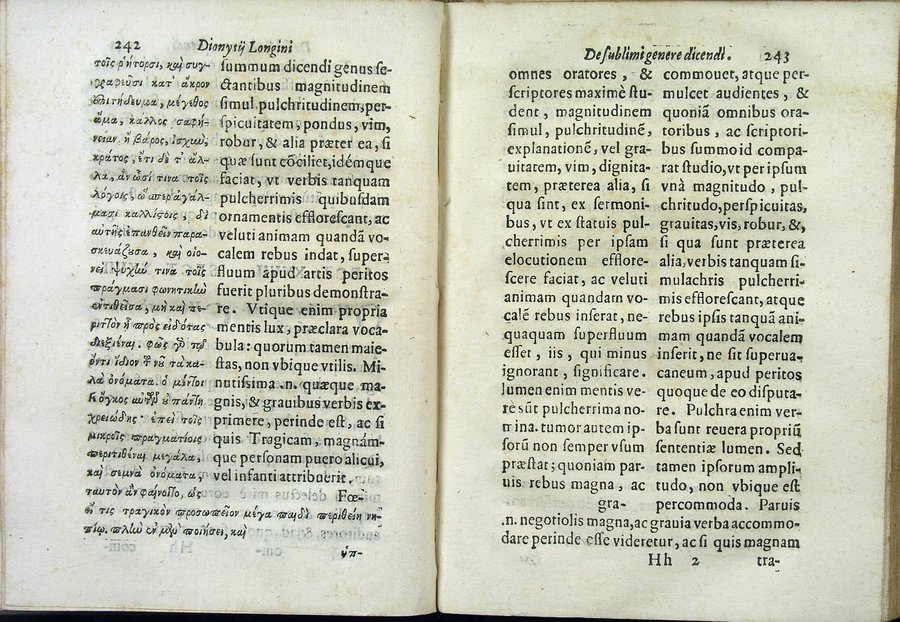 242 Dionysij Longini
τοῖς ῥήτορσι, καὶ συγ-
γραφεῦσι κατ' ἄκρον
ἐπιτήδευμα, μέγεθος
ἅμα, κάλλος σαφή-
νειαν ἢ βάρος, ἰσχὺν,
κράτος, ἔτι δὲ τ' ἄλ-
λα, ἂν ὦσί τινα τοῖς
λόγοις, ὥσπερ ἀγάλ-
μασι καλλίστοις, δι'
αὐτῆς ἐπανθεῖν παρα-
σκευάζουσα, καὶ οἱο-
νεὶ ψυχὴν τινα τοῖς
πράγμασι φωνητικὴν
ἐντιθεῖσα, μὴ καὶ πε-
ριττὸν ᾖ πρὸς εἰδότας
διεξιέναι. φῶς γὰρ τῷ
ὄντι ἴδιον τοῦ νοῦ τὰ κα-
λὰ ὀνόματα. ὁ μέντοι
ὄγκος αὐτῶν οὐ πάντη
χρειώδης· ἐπεὶ τοῖς
μικροῖς πραγματίοις
περιτιθέναι μεγάλα,
καὶ σεμνὰ ὀνόματα,
ταυτὸν ἂν φαίνοιτο, ὡς
εἴ τις τραγικὸν προσωπεῖον μέγα παιδὶ περιθείη νη-
πίῳ. πλὴν ἐν μὲν ποιήσει, καὶ
summum dicendi genus se-
ctantibus magnitudinem
simul, pulchritudinem, per-
spicuitatem, pondus, vim,
robur, & alia præter ea, si
quæ sunt cōciliet, idémque
faciat, vt verbis tanquam
pulcherrimis quibusdam
ornamentis efflorescant, ac
veluti animam quandā vo-
calem rebus indat, super-
fluum apud artis peritos
fuerit pluribus demonstra-
re. Vtique enim propria
mentis lux, præclara voca-
bula: quorum tamen maie-
stas, non vbique vtilis. Mi-
nutissima .n. quæque ma-
gnis, & grauibus verbis ex-
primere, perinde est, ac si
quis Tragicam, magnám-
que personam puero alicui,
vel infanti attribuerit.
Fœ-
ὑπ-
De sublimi genere dicendi. 243
omnes oratores, &
scriptores maximè stu-
dent, magnitudinem
simul, pulchritudinē,
explanationē, vel gra-
uitatem, vim, dignita-
tem, præterea alia, si
qua sint, ex sermoni-
bus, vt ex statuis pul-
cherrimis per ipsam
elocutionem efflore-
scere faciat, ac veluti
animam quandam vo-
calē rebus inserat, ne-
quaquam superfluum
esset, iis, qui minus
ignorant, significare.
lumen enim mentis ve-
re sūt pulcherrima no-
mina. tumor autem ip-
sorū non semper vsum
præstat; quoniam par-
uis rebus magna, ac
gra-
commouet, atque per-
mulcet audientes, &
quoniā omnibus ora-
toribus, ac scriptori-
bus summo id compa-
rat studio, vt per ipsum
vnà magnitudo, pul-
chritudo, perspicuitas,
grauitas, vis, robur, &,
si qua sunt præterea
alia, verbis tanquam si-
mulachris pulcherri-
mis efflorescant, atque
rebus ipsis tanquā ani-
mam quandā vocalem
inserit, ne sit superua-
caneum, apud peritos
quoque de eo disputa-
re. Pulchra enim ver-
ba sunt reuera propriū
sententiæ lumen. Sed
tamen ipsorum ampli-
tudo, non vbique est
percommoda. Paruis
.n. negotiolis magna, ac grauia verba accommo-
dare perinde esse videretur, ac si quis magnam
Hh 2 tra-